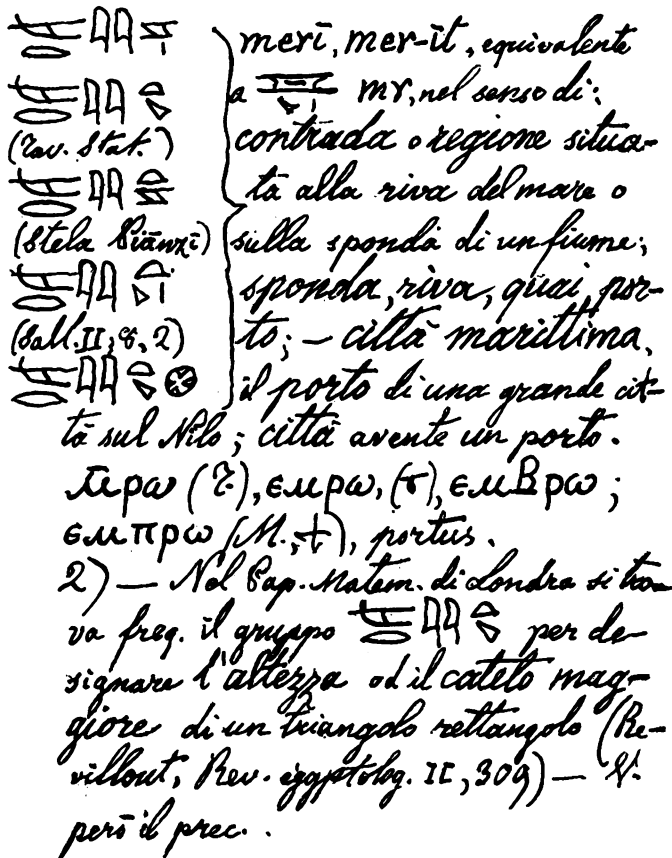 𓌸𓂋𓇋𓇋𓈘 meri, mer-it, equivalente
a 𓈘 mr, nel senso di:
𓌸𓂋𓇋𓇋 (Tav. Stat.) contrada o regione situa-
ta alla riva del mare o
(Stela Piānχi) sulla sponda di un fiume;
sponda, riva, quai, por-
(Sall. II, 8, 2) to; – città marittima,
il porto di una grande cit-
tà sul Nilo; città avente un porto.
ⲙⲣⲱ (ⲧ.), ⲉⲙⲣⲱ, (ⲧ), ⲉⲙⲃⲣⲱ;
ⲉⲙⲡⲣⲱ (M., ϯ), portus.
2) — Nel Pap. Matem. di Londra si tro-
va freq. il gruppo per de-
signare l'altezza od il cateto mag-
giore di un triangolo rettangolo (Re-
villout, Rev. egyptolog. II, 309) — V.
però il prec..